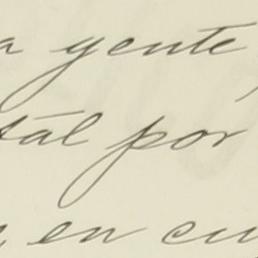 a yente
tál por
en cu